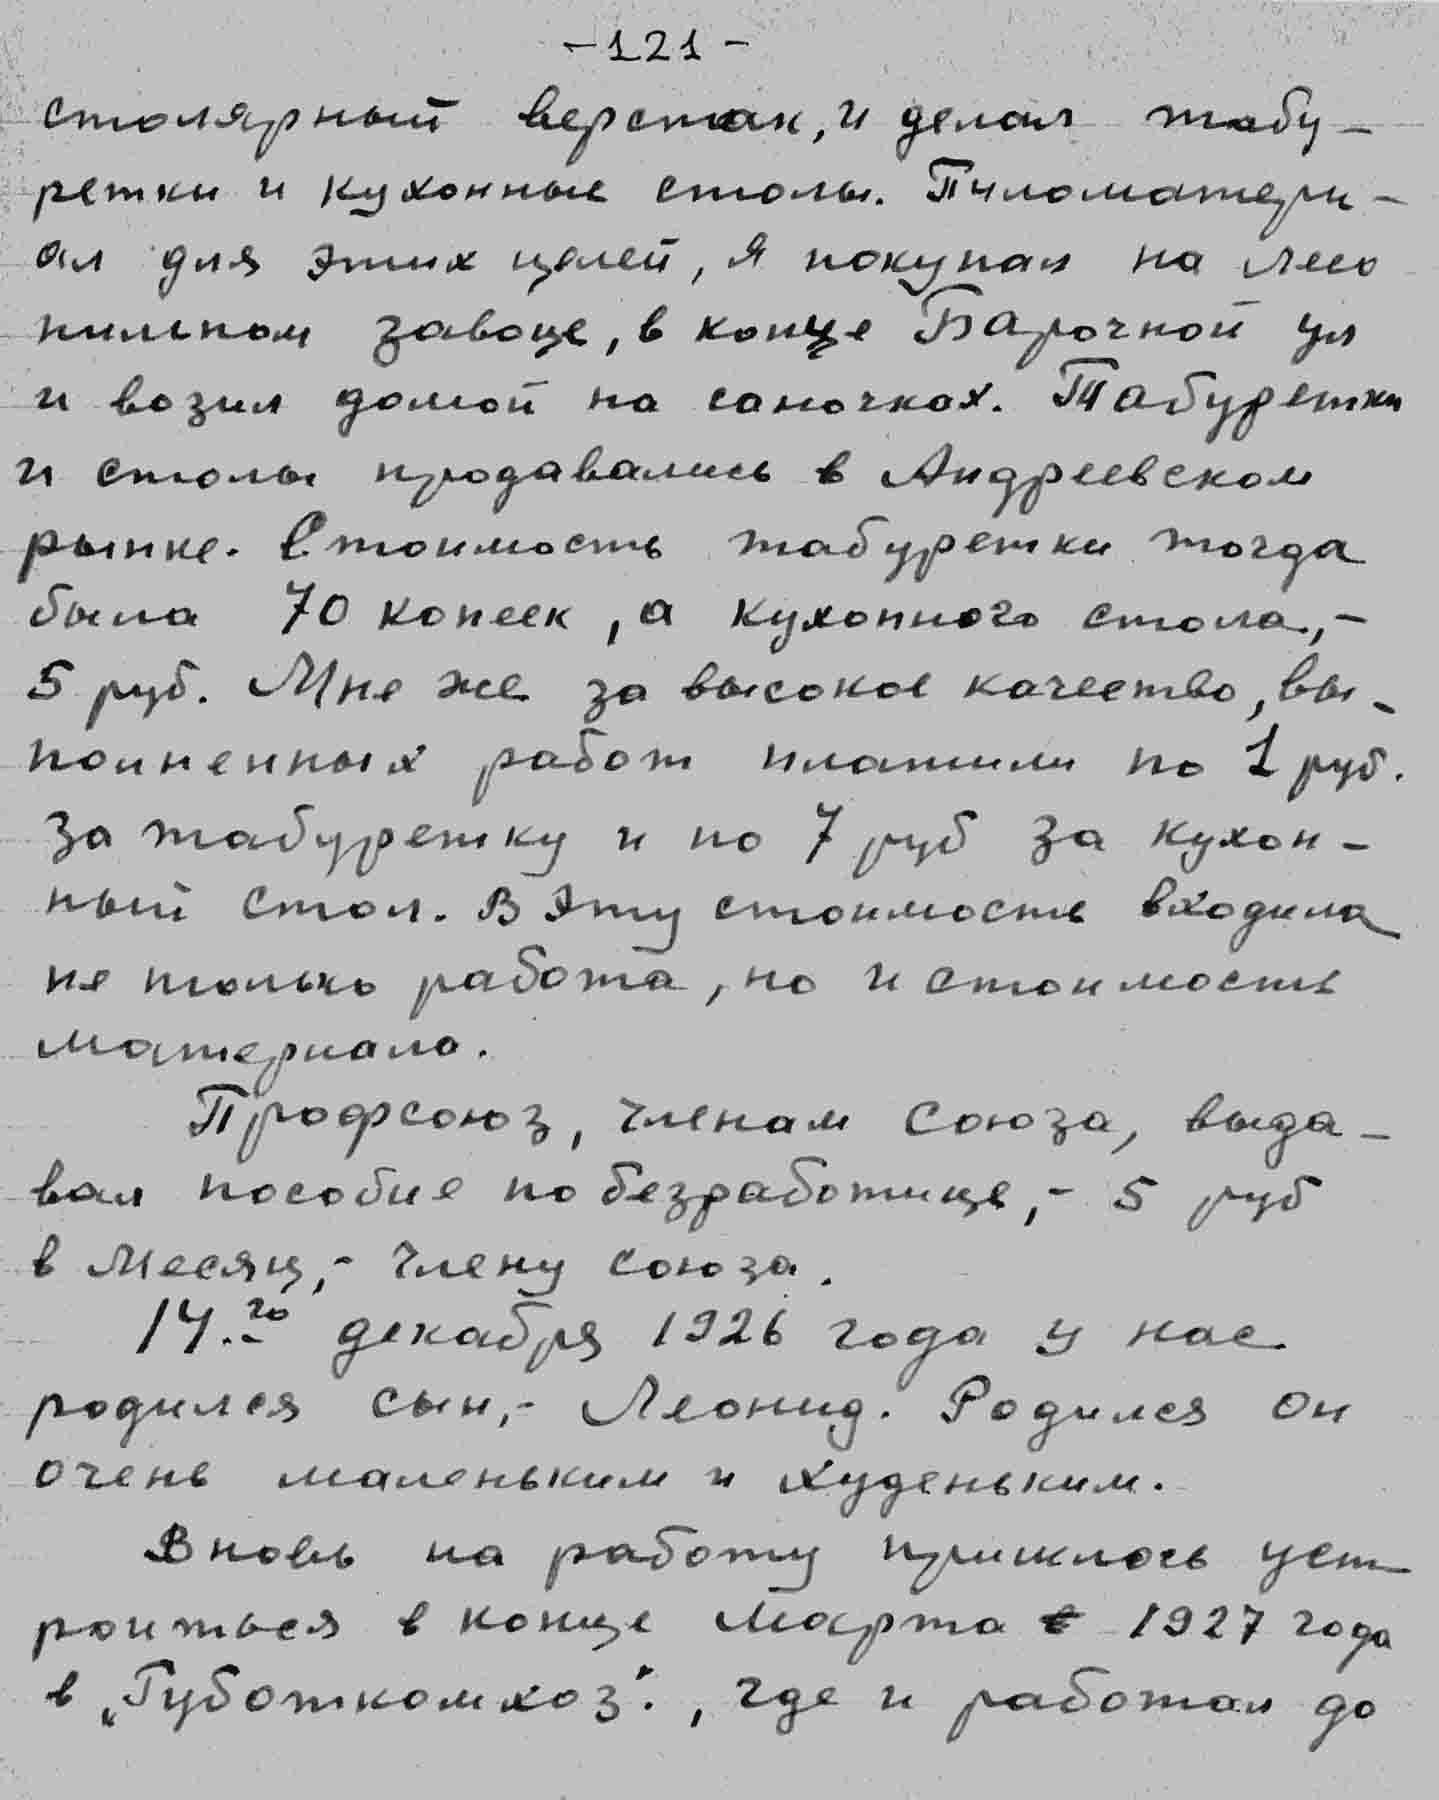 -121-
столярный верстак, и делал табу-
ретки и кухонные столы. Пиломатери-
ал для этих целей, я покупал на лесо
пильном заводе, в конце Барочной ул
и возил домой на саночках. Табуретки
и столы продавались в Андреевском
рынке. Стоимость табуретки тогда
была 70 копеек, а кухонного стола,-
5 руб. Мне же за высокое качество, вы-
полненных работ платили по 1 руб.
за табуретку и по 7 руб за кухон-
ный стол. В эту стоимость входила
не только работа, но и стоимость
материала.
Профсоюз, членам союза, выда-
вал пособие по безработице,- 5 руб
в месяц,- члену союза.
14.го декабря 1926 года у нас
родился сын,- Леонид. Родился он
очень маленьким и худеньким.
Вновь на работу пришлось уст
роиться в конце марта 1927 года
в „Губоткомхоз"., где и работал до